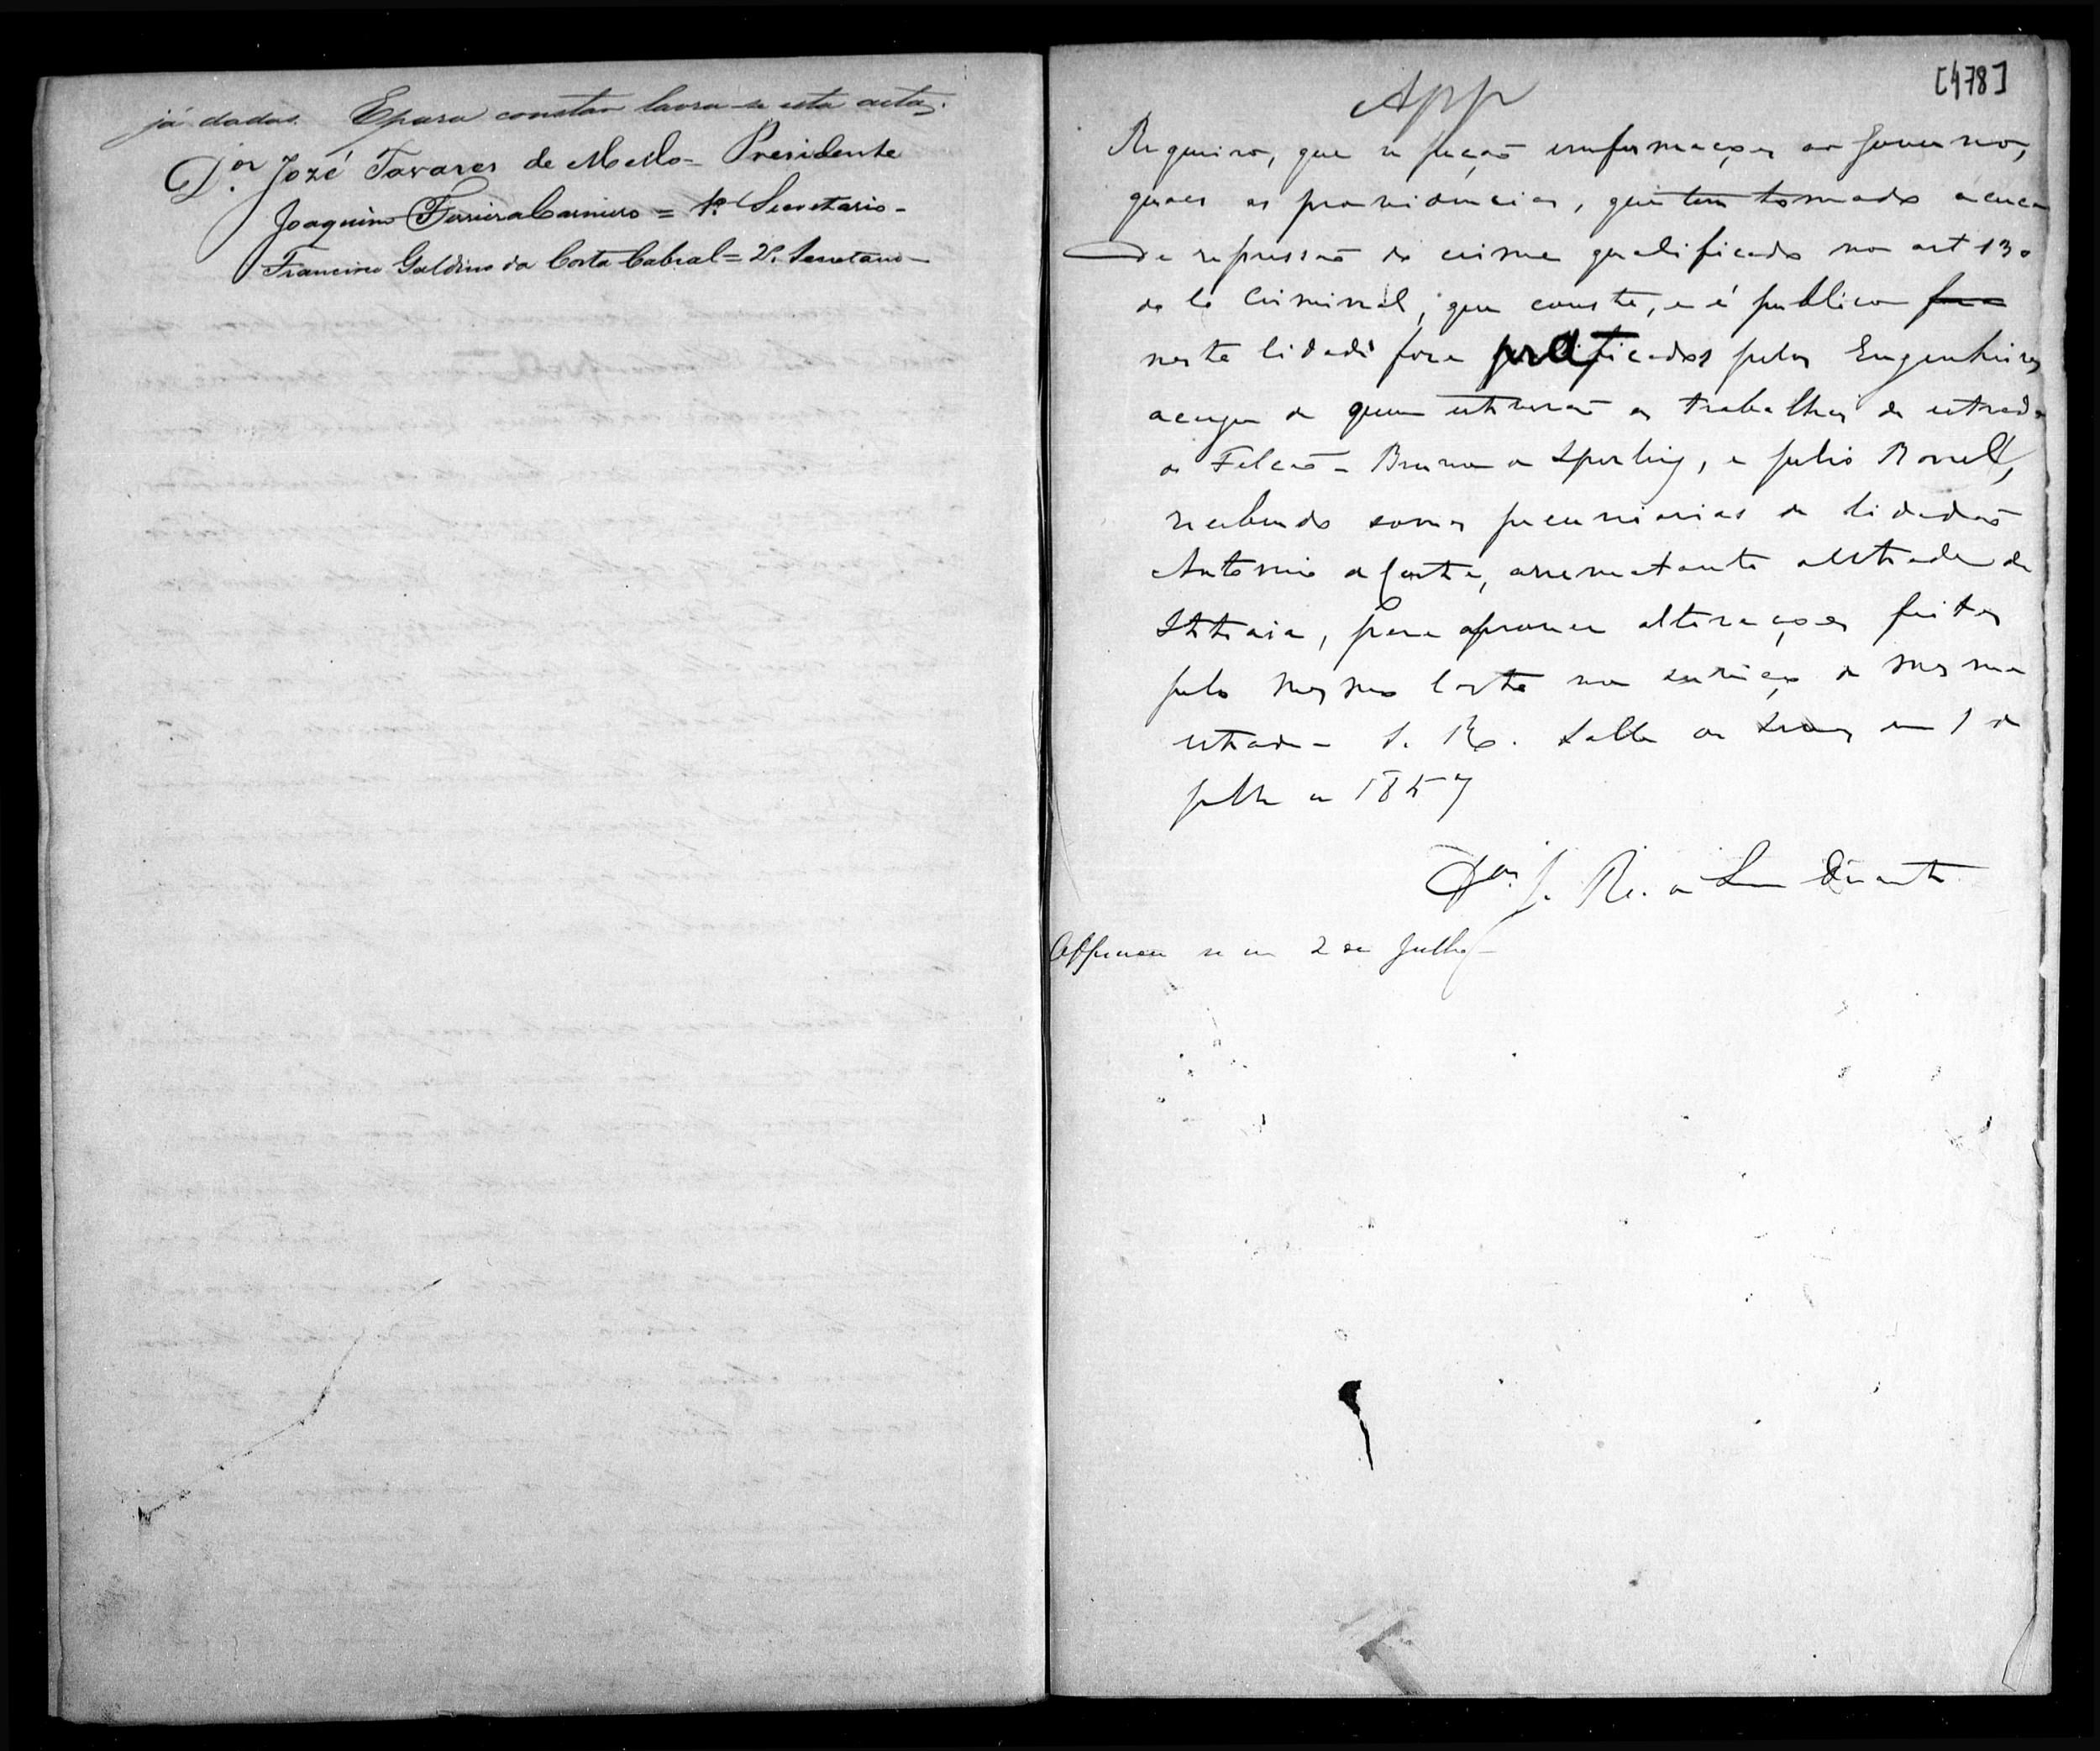 já dadas. E para constar lavra-se esta acta.
Dor. José Tavares de Mello = Presidente
Joaquim Ferreira Carneiro = 1º Secretario -
Francisco Galdino da Costa Cabral = 2º. Secretario -
[478]
App
Requeiro, que se peção emformações ao Governo,
quaes as providencias, que tem tomado acerca
da repressão do crime qualificado no art 130
do Co Criminal, que consta, e é publico fora
nesta Cidade fora praticados pelos Engenheiros
a cargo de quem estiverão os trabalhos da estrada
o Falcão - Bruno a Sperling, e Julio Borell,
recebendo somas pecuniarias do Cidadão
Antonio da Costa, arrematante da Estrada da
Itatiaia, para aprovar alterações feitas
pelo mesmo Costa no serviço da mesma
estrada - S. R. Salla das em 1 de
Julho de 1857
Dor. J. Re. de Duarte
Approvou se em 2 de Julho -